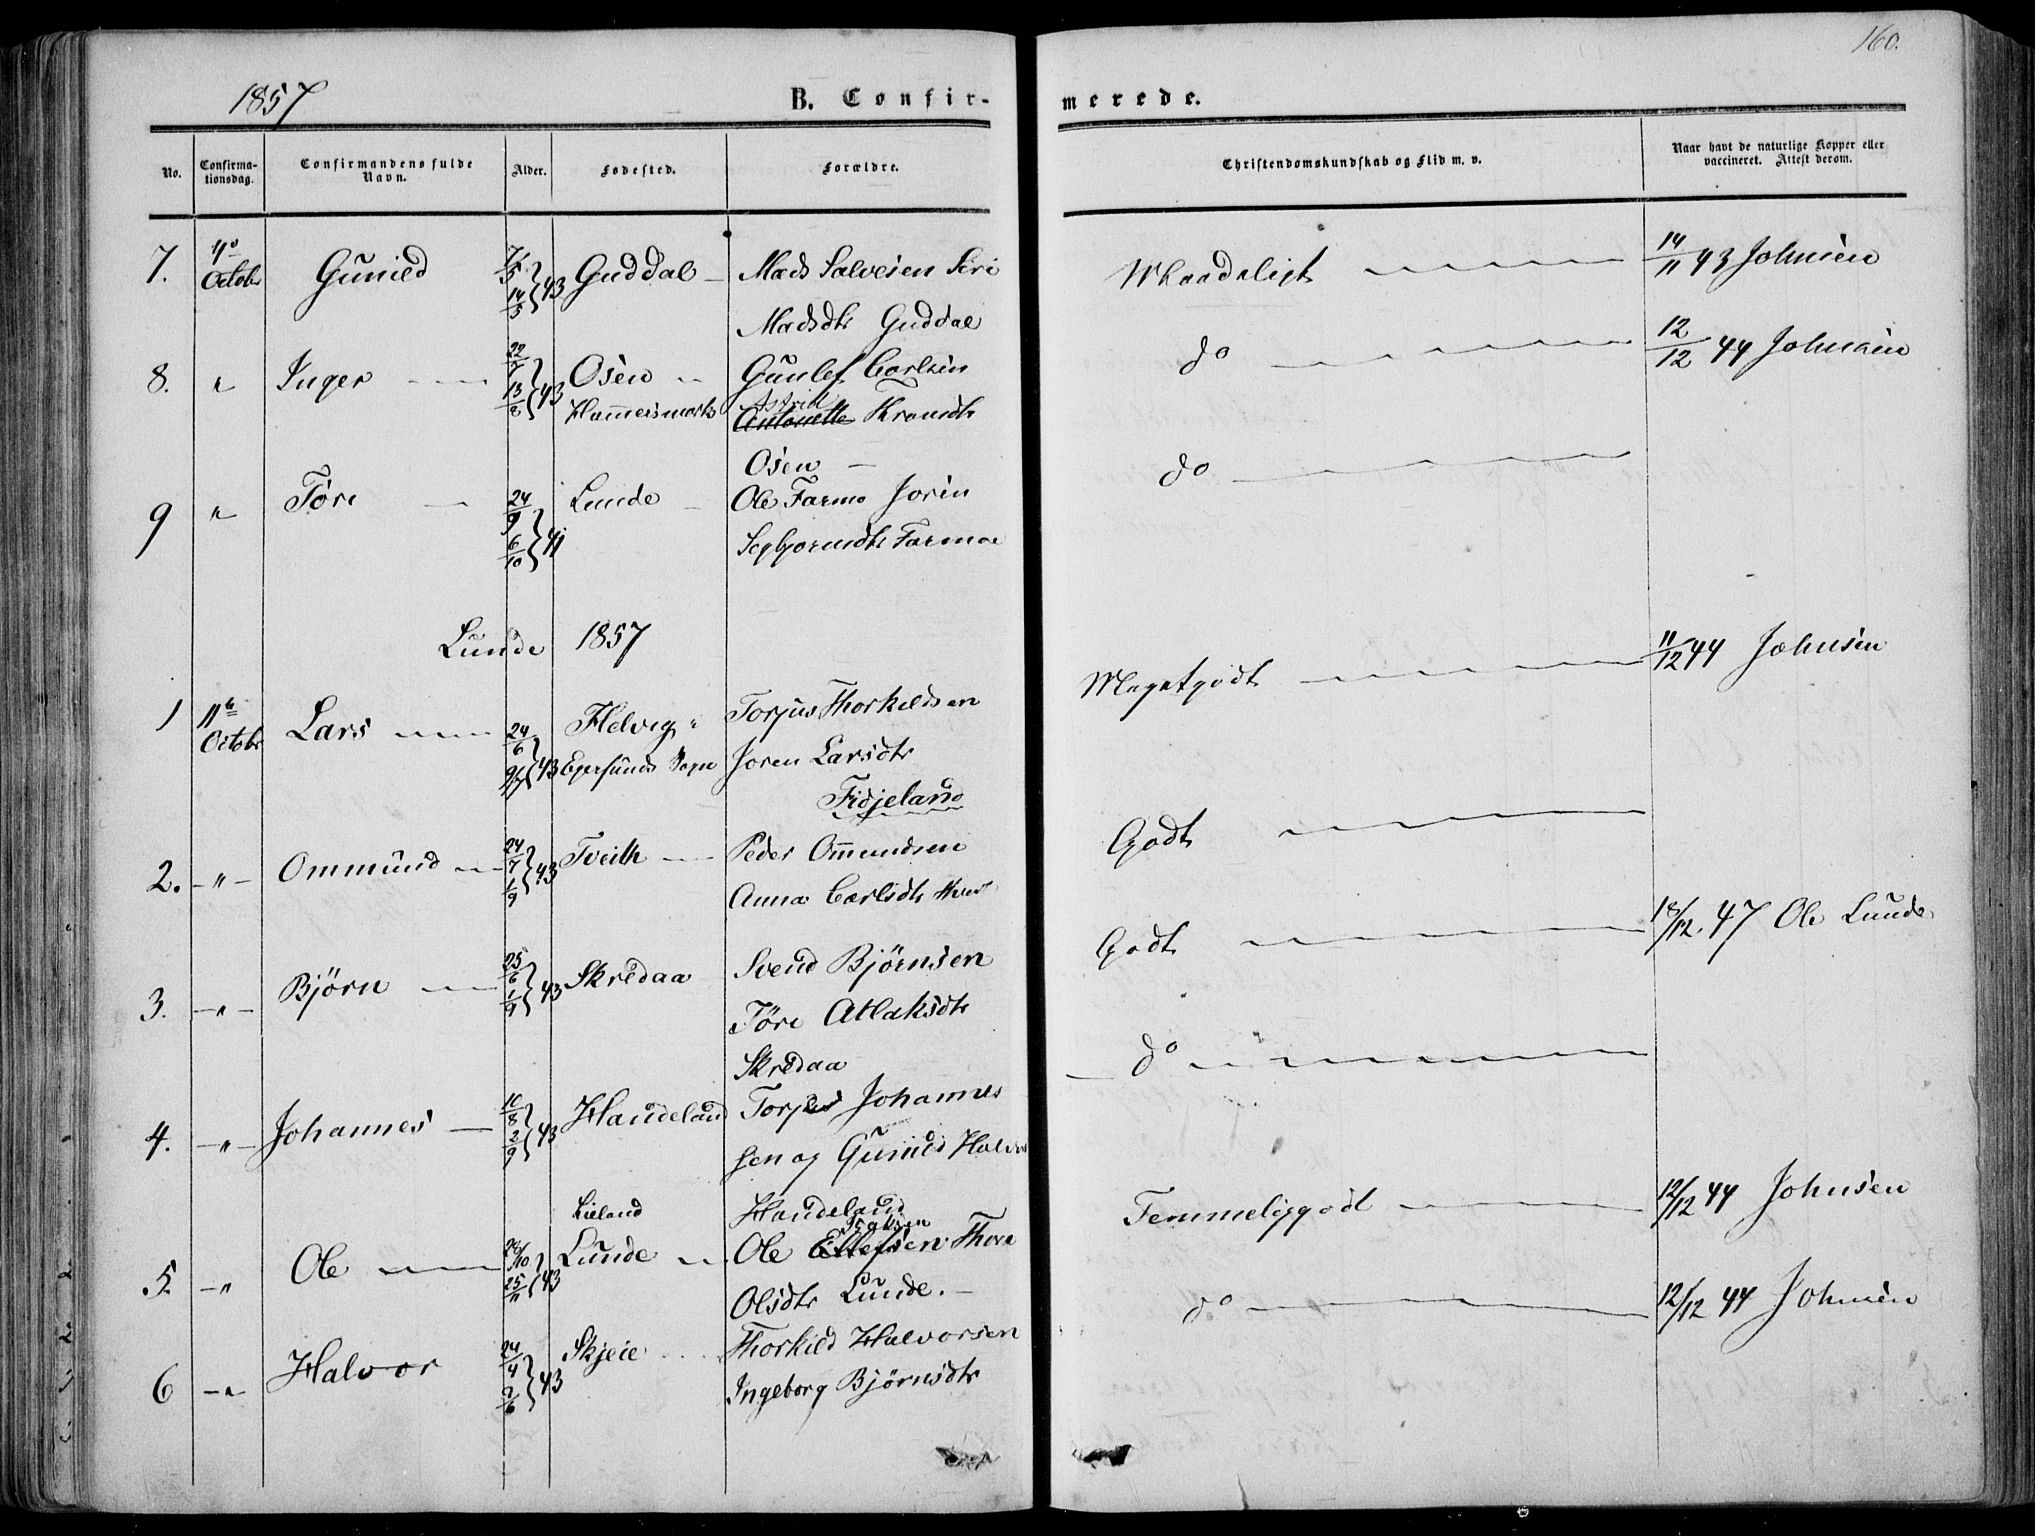 160.
1857
B. Confir-
merede.
No.
Confirma-
tionsdag.
Confirmandens fulde
Navn.
Alder.
Fødested.
Forældre.
Christendomskundskab og Flid m. v.
Naar havt de naturlige Kopper eller
vaccineret. Attest derom.
7. 4de Octobr Gunild 14/5 43 Guddal Mads Salvesen Siri
Madsdtr Guddal
Maadeligt 14/11 43 Johnsen
8. " Inger 43 Osen Gunlef Carlsen
Hammersmark Astrid
Antonette
Osen
do 12/12 44 Johnsen
9 " Töre 24/9 6/10 41 Lunde Ole Farmo Joren
Farmoe
do
Lunde 1857
1 11te Octobr Lars 24/6 9/7 43 Helvig Torjus Thorkildsen
Egersunds Sogn Joren Larsdtr
Fidjeland
Megetgodt 11/12 44 Johnsen
2. " Ommund 24/7 1/9 43 Tveith Peder Ommundsen
Anna Carlsdtr
Godt
3. " Björn 25/6 1/9 43 Skredaa Svend Björnsen
Töre Atlaksdtr
Skredaa
Godt 18/12 47 Ole Lunde
4. " Johannes 10/8 2/9 43 Haudeland Torjus Johannes
sen og Gunild Halvors
Haudeland
do
Lieland
5 " Ole 28/10 25/11 43 Lunde Ole Ellefsen Thore
Olsdtr Lunde.
Temmeliggodt 12/12 44 Johnsen
6 " Halvor 24/4 2/6 43 Skjeie Thorkild Halvorsen
Ingeborg Björnsdtr
do 12/12 44 Johnsen